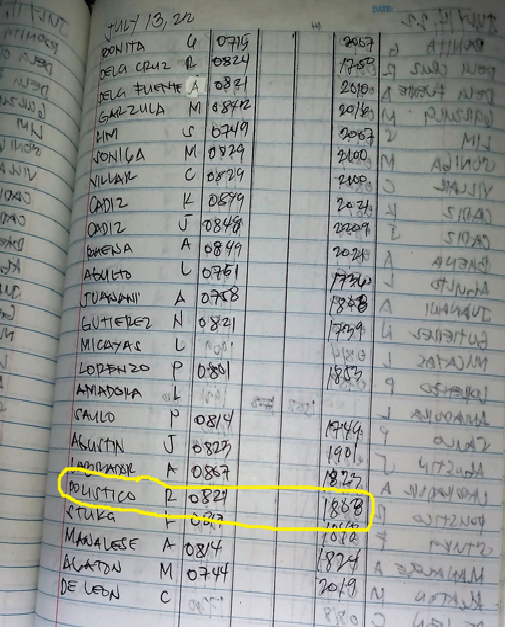 JULY 13, 22
BONITA G 0715 2057
DELA CRUZ R 0824 1759
DELA FUENTE A 0821 2010
GARZULA M 0842
LIM S 0749 2057
SONIGA M 0829 2100
VILLAR C 0829 2100
CADIZ K 0899
CADIZ J 0848 2209
BAENA A 0849 2021
AGULTO L 0751 1736
JUANANI A 0758 1848
GUTIEREZ N 0821 1739
MICAYAS L
LORENZO P 0801 1853
AMADORA L
SAULO P 0814 1744
AGUSTIN J 0823 1901
LABRADOR A 0857 1823
POLISTICO R 0821 1808
MANALESE A 0814 1824
AGATON M 0744 2019
DE LEON C